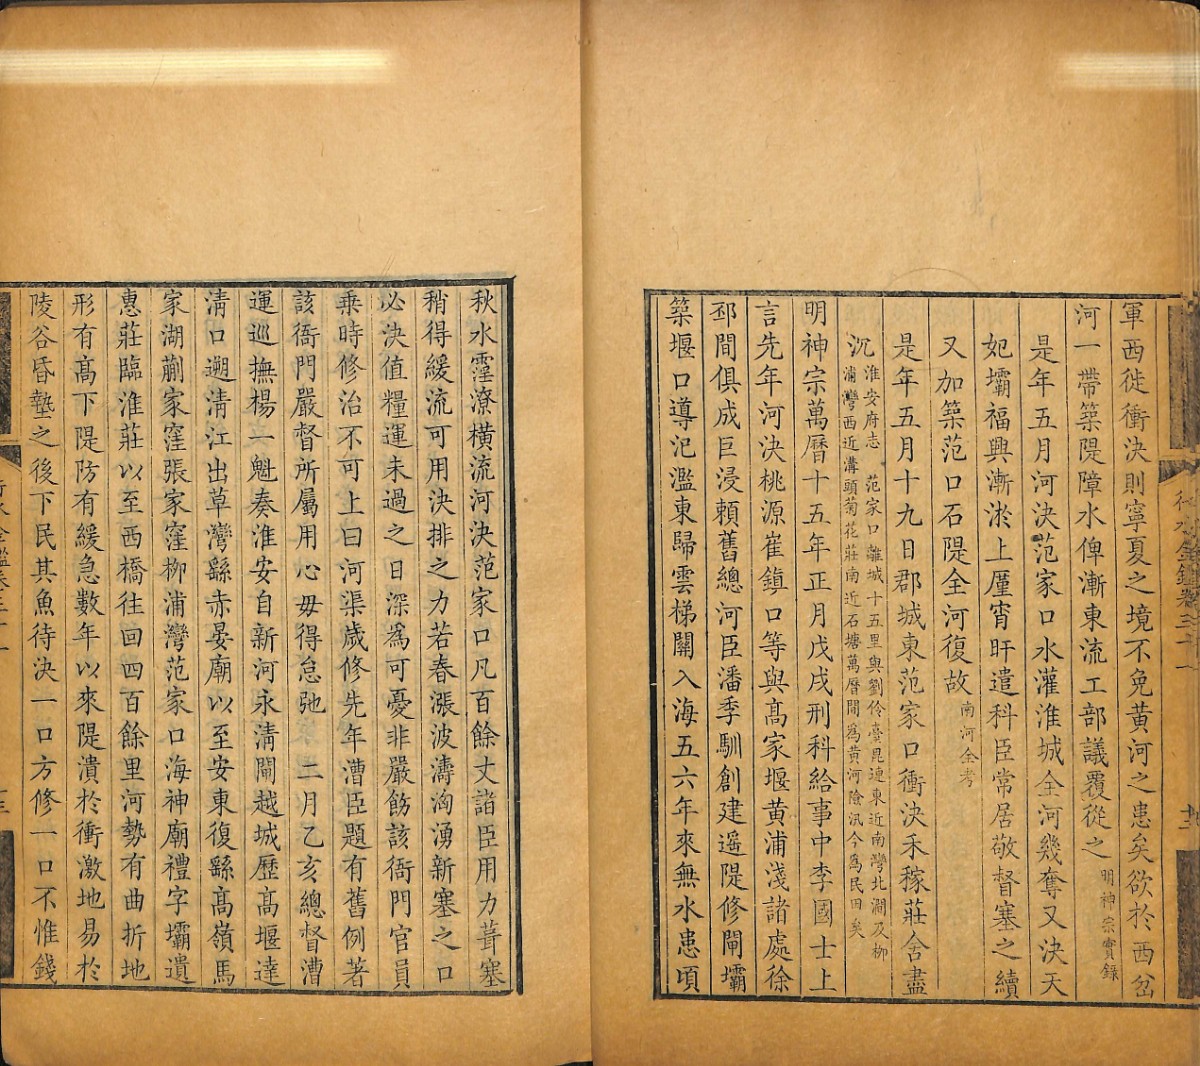 軍西徙衝決則寧夏之境不免黃河之患矣欲於西岔
河一帶築隄障水俾漸東流工部議覆從之明神宗實錄
是年五月河決范家口水灌淮城全河幾奪又決天
妃壩福興漸淤上厪宵旰遣科臣常居敬督塞之續
又加築范口石隄全河復故南河全考
是年五月十九日郡城東范家口衝決禾稼莊舍盡
沉淮安府志 范家口離城十五里與劉伶臺毘連東近南灣北澗及柳
浦灣西近溝頭菊花莊南近石塘萬曆間為黃河險汛今為民田矣
明神宗萬曆十五年正月戊戌刑科給事中李國士上
言先年河決桃源崔鎮口等與高家堰黃浦淺諸處徐
邳間俱成巨浸賴舊總河臣潘季馴創建遥隄修閘壩
築堰口導氾濫東歸雲梯關入海五六年來無水患頃
秋水霪潦橫流河決范家口凡百餘丈諸臣用力葺塞
稍得緩流可用決排之力若春漲波濤洶湧新塞之口
必決值糧運未過之日深為可憂非嚴飭該衙門官員
乗時修治不可上曰河渠歲修先年漕臣題有舊例著
該衙門嚴督所屬用心毋得怠弛 二月乙亥總督漕
運巡撫楊一魁奏淮安自新河永清閘越城歷高堰達
清口遡清江出草灣繇赤晏廟以至安東復繇高嶺馬
家湖蒯家窪張家窪柳浦灣范家口海神廟禮字壩遺
惠莊臨淮莊以至西橋往回四百餘里河勢有曲折地
形有高下隄防有緩急數年以來隄潰於衝激地易於
陵谷昏墊之後下民其魚待決一口方修一口不惟錢